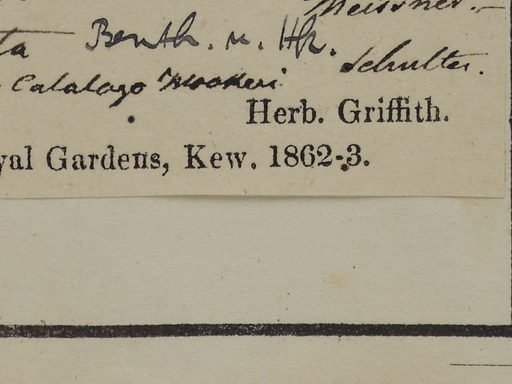 Meissner.-
ta Benth. n. Hk.
Schultes.
Catalogo Hookeri
Herb. Griffith.
yal Gardens, Kew. 1862-3.